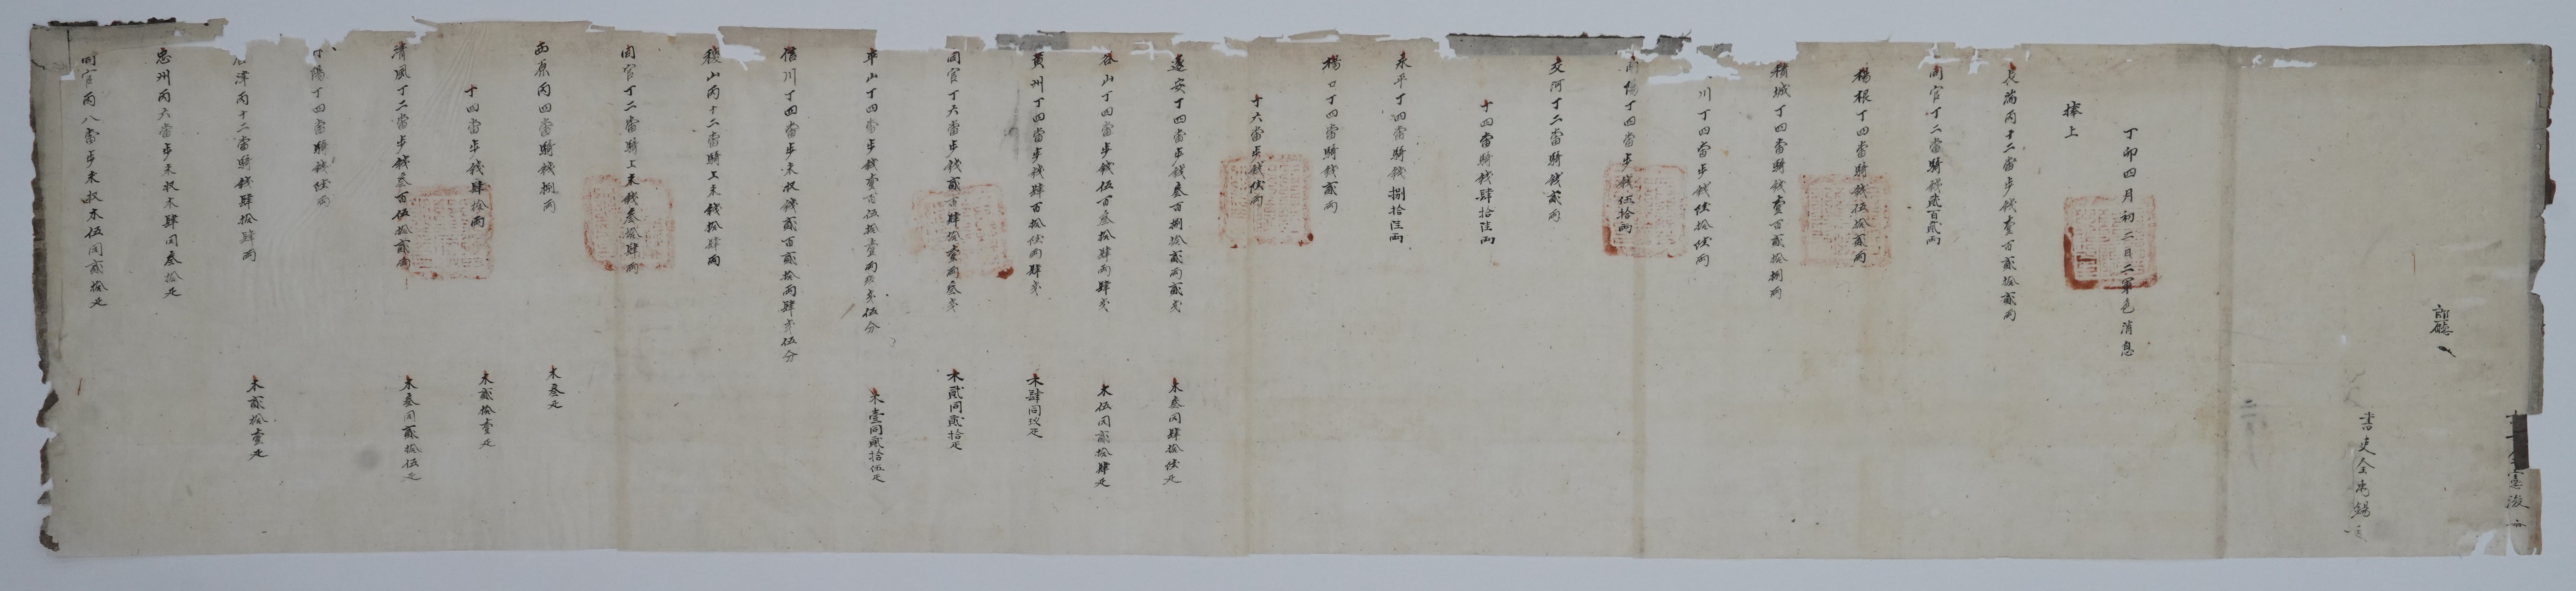 書吏金 錫
丁卯四月初二日二軍色消息
捧上
長湍丙十二當步錢壹百貳拾貳兩
同官丁二當騎錢貳百貳兩
楊根丁四當騎錢伍拾貳兩
積城丁四當騎錢壹百貳拾捌兩
川丁四當步錢陸拾陸兩
陽丁四當步錢伍拾兩
交河丁二當騎錢貳兩
十四當騎錢肆拾陸兩
永平丁四當騎錢捌拾陸兩
楊口丁四當騎錢貳兩
十六當步錢陸兩
遂安丁四當步錢叁百捌拾貳兩貳戔 木叁同肆拾陸疋
谷山丁四當步錢伍百叁拾肆兩肆戔 木伍同貳拾肆疋
黃州丁四當步錢肆百拾陸兩肆戔 木肆同玖疋
同官丁六當步錢貳百肆拾壹兩叁戔 木貳同貳拾疋
平山丁四當步錢壹百伍拾壹兩 戔伍分 木壹同貳拾伍疋
信川丁四當步未收錢貳百貳拾兩肆戔伍分
稷山丙十二當騎上末錢拾肆兩
同官丁二當騎上末錢叁拾肆兩
西原丙四當騎錢捌兩 木叁疋
十四當步錢肆拾兩 木貳拾壹疋
清風丁二當步錢叁百伍拾貳兩 木叁同貳拾伍疋
陽丁四當騎錢陸兩
津丙十二當騎錢肆拾肆兩 木貳拾壹疋
忠州丙六當步未收木肆同叁拾疋
同官丙八當步未收木伍同貳拾疋